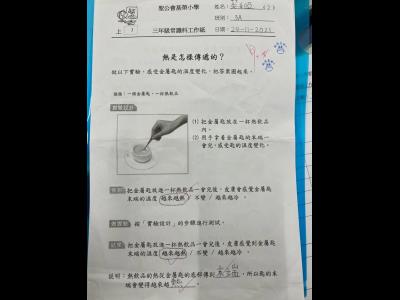 聖公會基榮小學
姓名:
班別: 3A
上 1
三年級常識科工作紙
日期: 24-11-2021
熱是怎樣傳遞的?
做以下實驗,感受金屬匙的溫度變化,把答案圈起來。
一個金屬匙、一杯熱飲品
實驗設計
(1) 把金屬匙放在一杯熱飲品內。
(2) 用手拿着金屬匙的末端一會兒,感受匙的溫度變化。
把金屬匙放進一杯熱飲品一會兒後,皮膚會感覺金屬匙
末端的溫度 越來越熱 / 不變 / 越來越冷 。
按「實驗設計」的步驟進行測試。
把金屬匙放進一杯熱飲品一會兒後,皮膚感覺到金屬匙
末端的溫度 越來越熱 / 不變 / 越來越冷 。
說明:熱飲品的熱從金屬匙的底部傳到末端,所以匙的末
端會變得越來越熱。